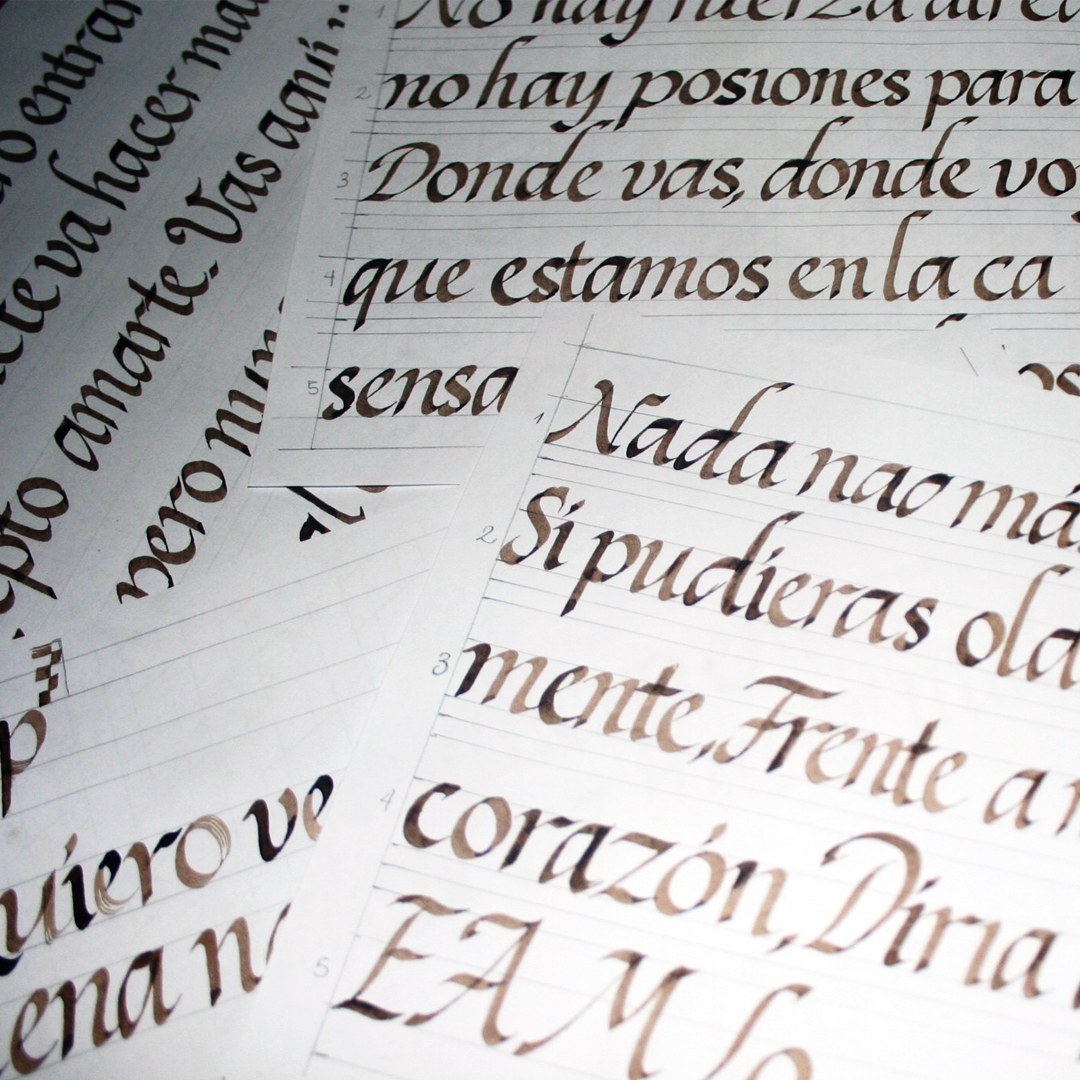 o entrar
te va hacer ma
epto amarte. Vas aquí
pero nun
1 No hay fuerza alred
2 no hay posiones para
3 Donde vas, donde vo
4 que estamos en la ca
5 sensa
1 Nada nao má
2 Si pudieras old
3 mente, Frente a
4 corazón, Diria
5 E A M
p
uiero ve
ena n